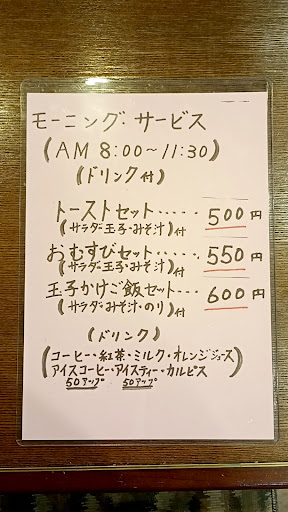 モーニング・サービス
(AM 8:00~11:30)
(ドリンク付)
トーストセット・・・・・500円
(サラダ・玉子・みそ汁)付
おむすびセット・・・・・550円
(サラダ・玉子・みそ汁)付
玉子かけご飯セット・・・600円
(サラダ・みそ汁・のり)付
(ドリンク)
(コーヒー・紅茶・ミルク・オレンジジュース
アイスコーヒー・アイスティー・カルピス)
50アップ 50アップ